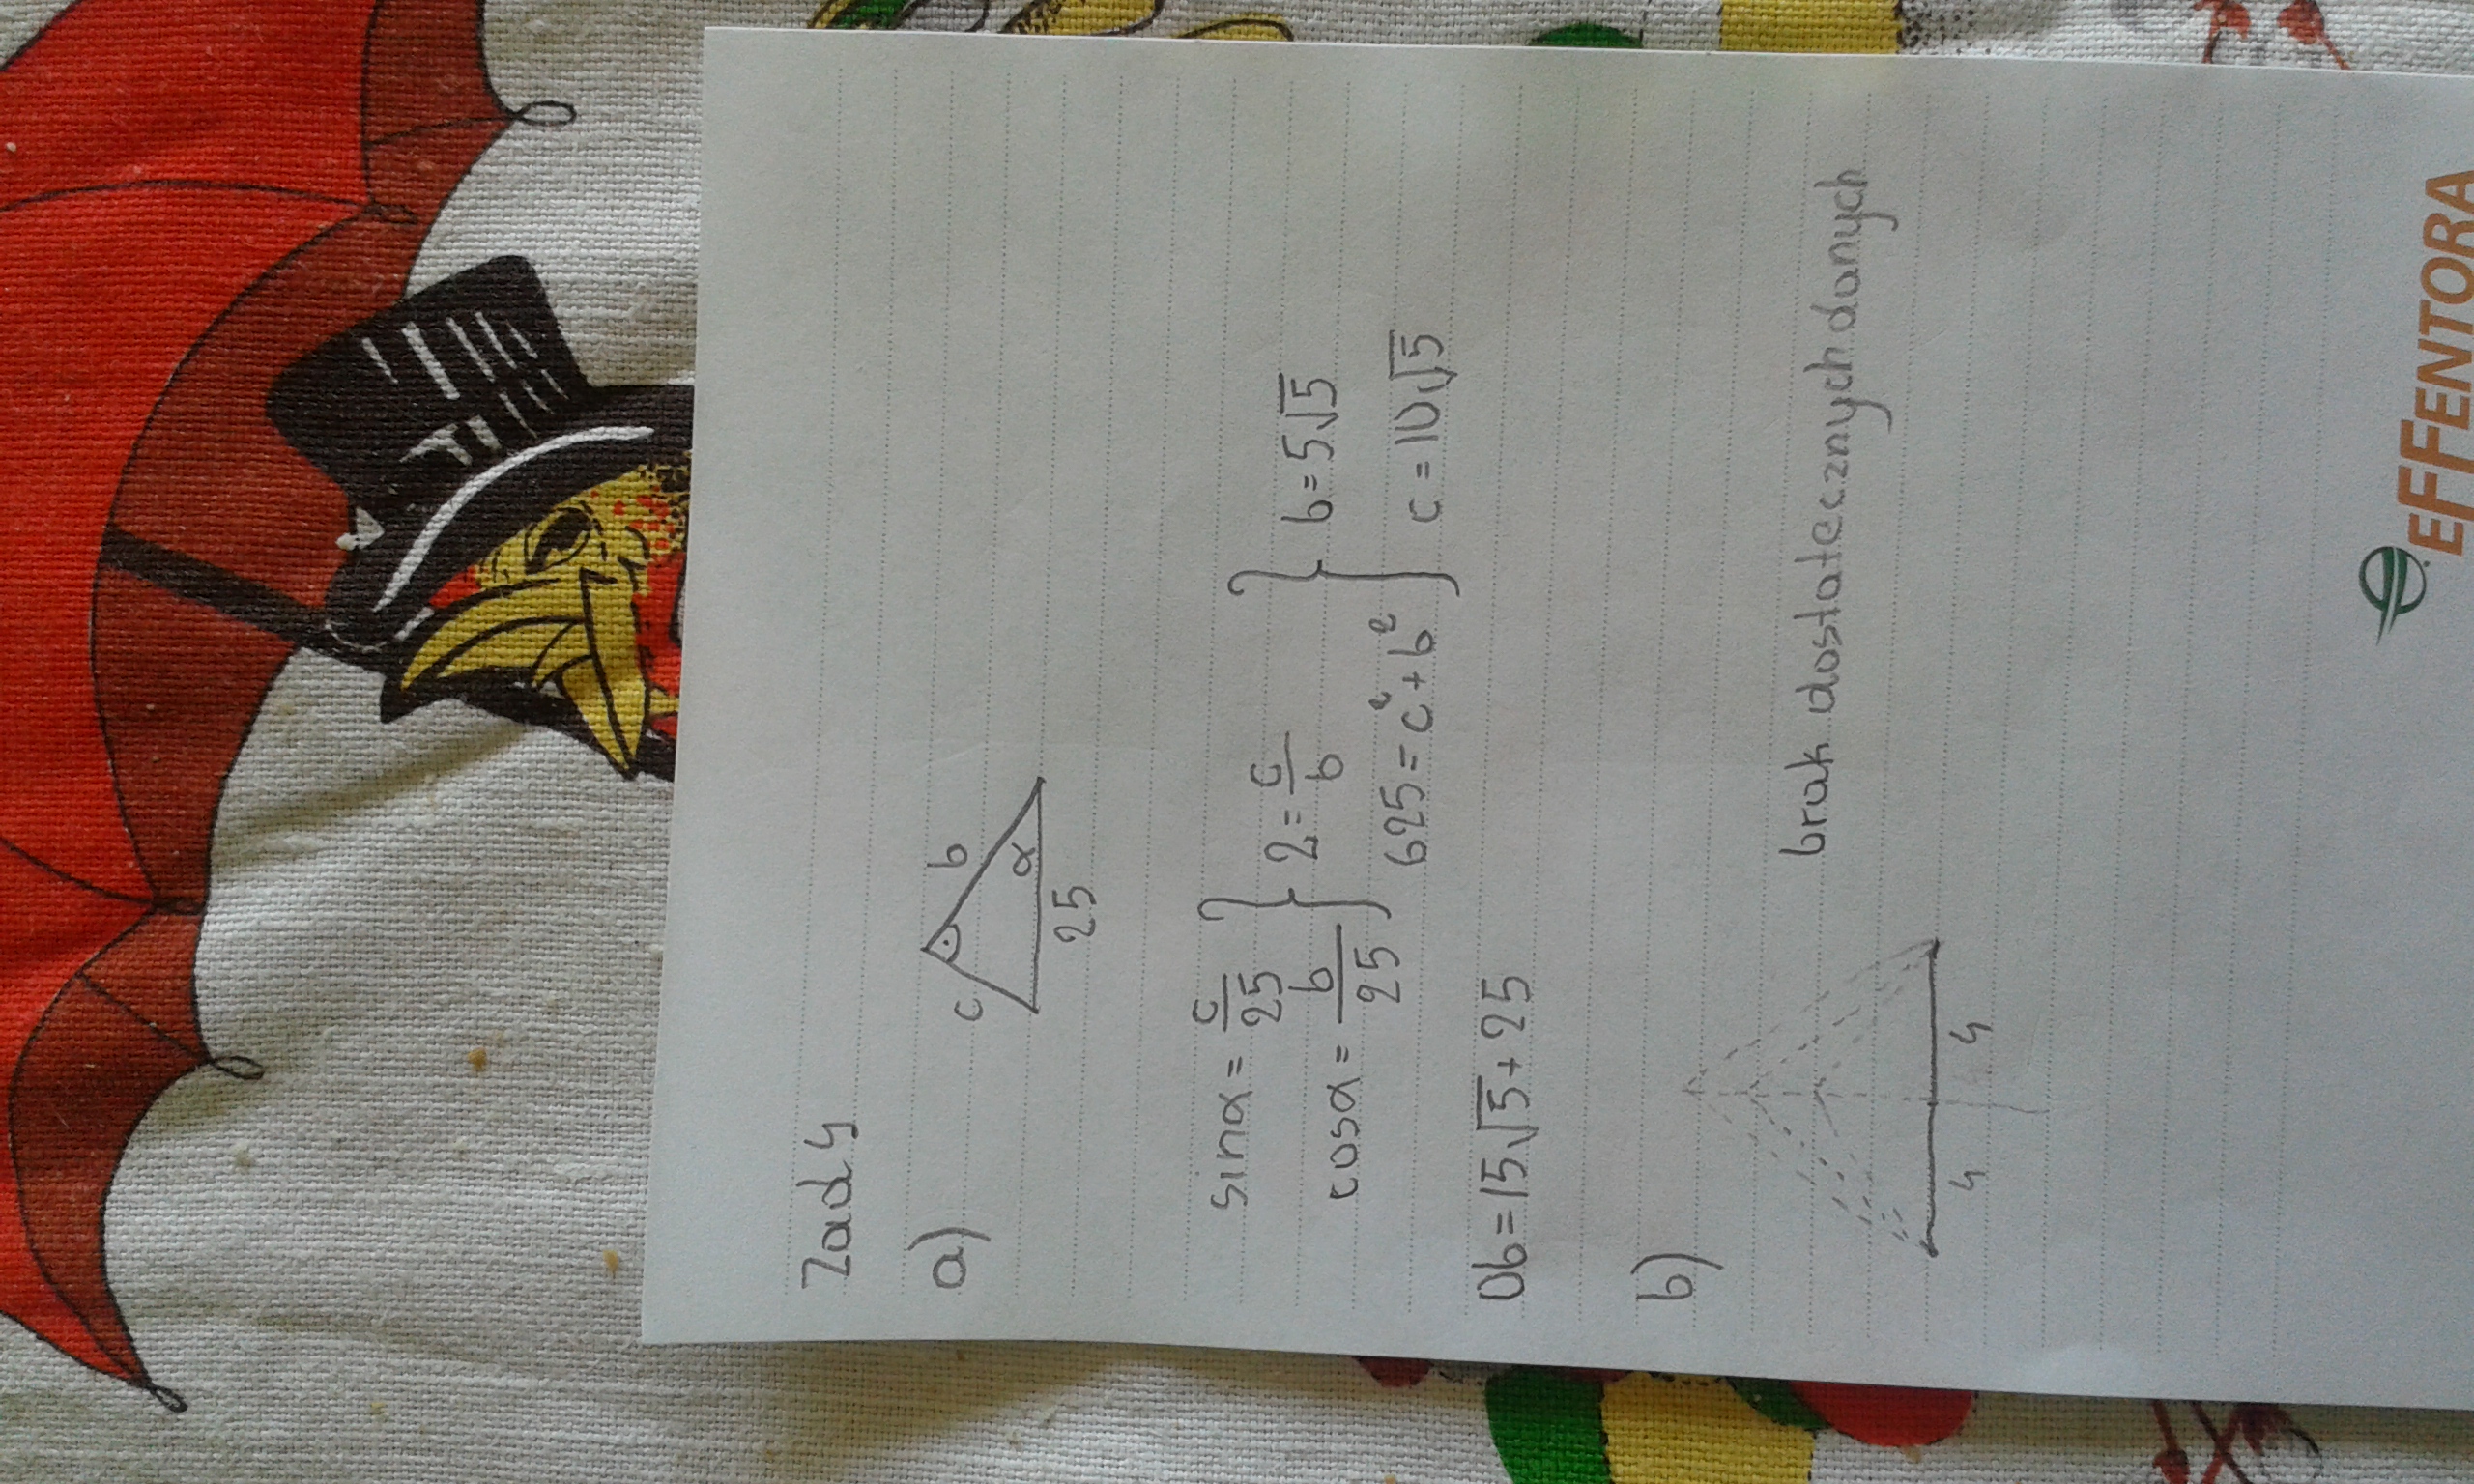 Zad 4
a)
c b
α
25
sinα = c/25 } 2 = c/b } b = 5√5
cosα = b/25 } 625 = c² + b² } c = 10√5
Ob = 15√5 + 25
b)
brak dostatecznych danych
4 4
EFFENTORA